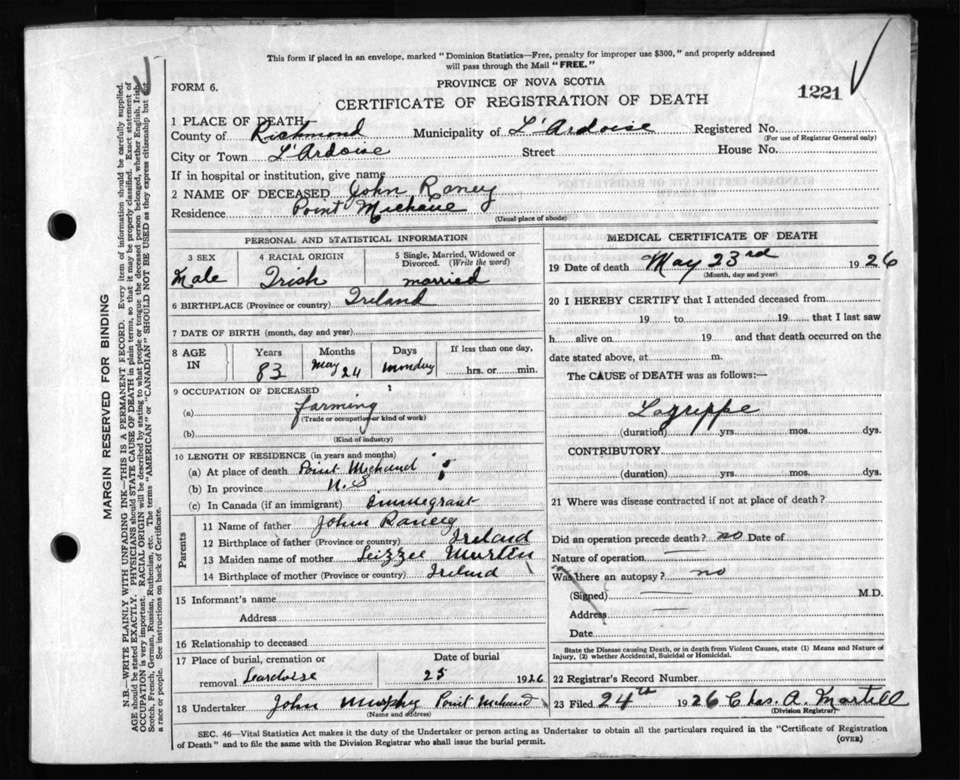 This form if placed in an envelope, marked "Dominion Statistics—Free, penalty for improper use $300," and properly addressed
will pass through the Mail "FREE."
FORM 6.
PROVINCE OF NOVA SCOTIA
CERTIFICATE OF REGISTRATION OF DEATH
1221
1 PLACE OF DEATH
County of Richmond Municipality of L'Ardoise Registered No.
(For use of Registrar General only)
City or Town L'Ardoise Street House No.
If in hospital or institution, give name
2 NAME OF DECEASED John Raney
Residence Point Michaue
(Usual place of abode)
PERSONAL AND STATISTICAL INFORMATION
3 SEX 4 RACIAL ORIGIN 5 Single, Married, Widowed or
Divorced. (Write the word)
Male Irish married
6 BIRTHPLACE (Province or country) Ireland
7 DATE OF BIRTH (month, day and year)
8 AGE IN Years Months Days If less than one day,
83 May 24 Monday hrs. or min.
9 OCCUPATION OF DECEASED
(a) farming
(Trade or occupation or kind of work)
(b)
(Kind of industry)
10 LENGTH OF RESIDENCE (in years and months)
(a) At place of death Point Michaud
(b) In province N.S
(c) In Canada (if an immigrant) Immegrant
Parents
11 Name of father John Raney
12 Birthplace of father (Province or country) Ireland
13 Maiden name of mother Leizzee Murtin
14 Birthplace of mother (Province or country) Ireland
15 Informant's name
Address
16 Relationship to deceased
17 Place of burial, cremation or Date of burial
removal Leardoise 25 1926
18 Undertaker John Murphy Point Michaud
(Name and address)
MEDICAL CERTIFICATE OF DEATH
19 Date of death May 23rd 1926
(Month, day and year)
20 I HEREBY CERTIFY that I attended deceased from
19 to 19 that I last saw
h alive on 19 and that death occurred on the
date stated above, at m.
The CAUSE of DEATH was as follows:—
Lagrippe
(duration) yrs. mos. dys.
CONTRIBUTORY
(duration) yrs. mos. dys.
21 Where was disease contracted if not at place of death?
Did an operation precede death? no Date of
Nature of operation
Was there an autopsy? no
(Signed) M.D.
Address
Date
State the Disease causing Death, or in death from Violent Causes, state (1) Means and Nature of
Injury, (2) whether Accidental, Suicidal or Homicidal.
22 Registrar's Record Number
23 Filed 24th 1926 Chas. A. Martell
(Division Registrar)
SEC. 46—Vital Statistics Act makes it the duty of the Undertaker or person acting as Undertaker to obtain all the particulars required in the "Certificate of Registration
of Death" and to file the same with the Division Registrar who shall issue the burial permit.
(OVER)
MARGIN RESERVED FOR BINDING
N.B.—WRITE PLAINLY WITH UNFADING INK—THIS IS A PERMANENT RECORD. Every item of information should be carefully supplied.
AGE should be stated EXACTLY. PHYSICIANS should STATE CAUSE OF DEATH in plain terms, so that it may be properly classified. Exact statement of
OCCUPATION is very important. RACIAL ORIGIN will be described by stating to what people or tongue the deceased person belonged, whether English, Irish,
Scotch, French, German, Russian, Ruthenian, etc. The terms "AMERICAN" or "CANADIAN" SHOULD NOT BE USED as they express citizenship but not
a race or people. See instructions on back of Certificate.